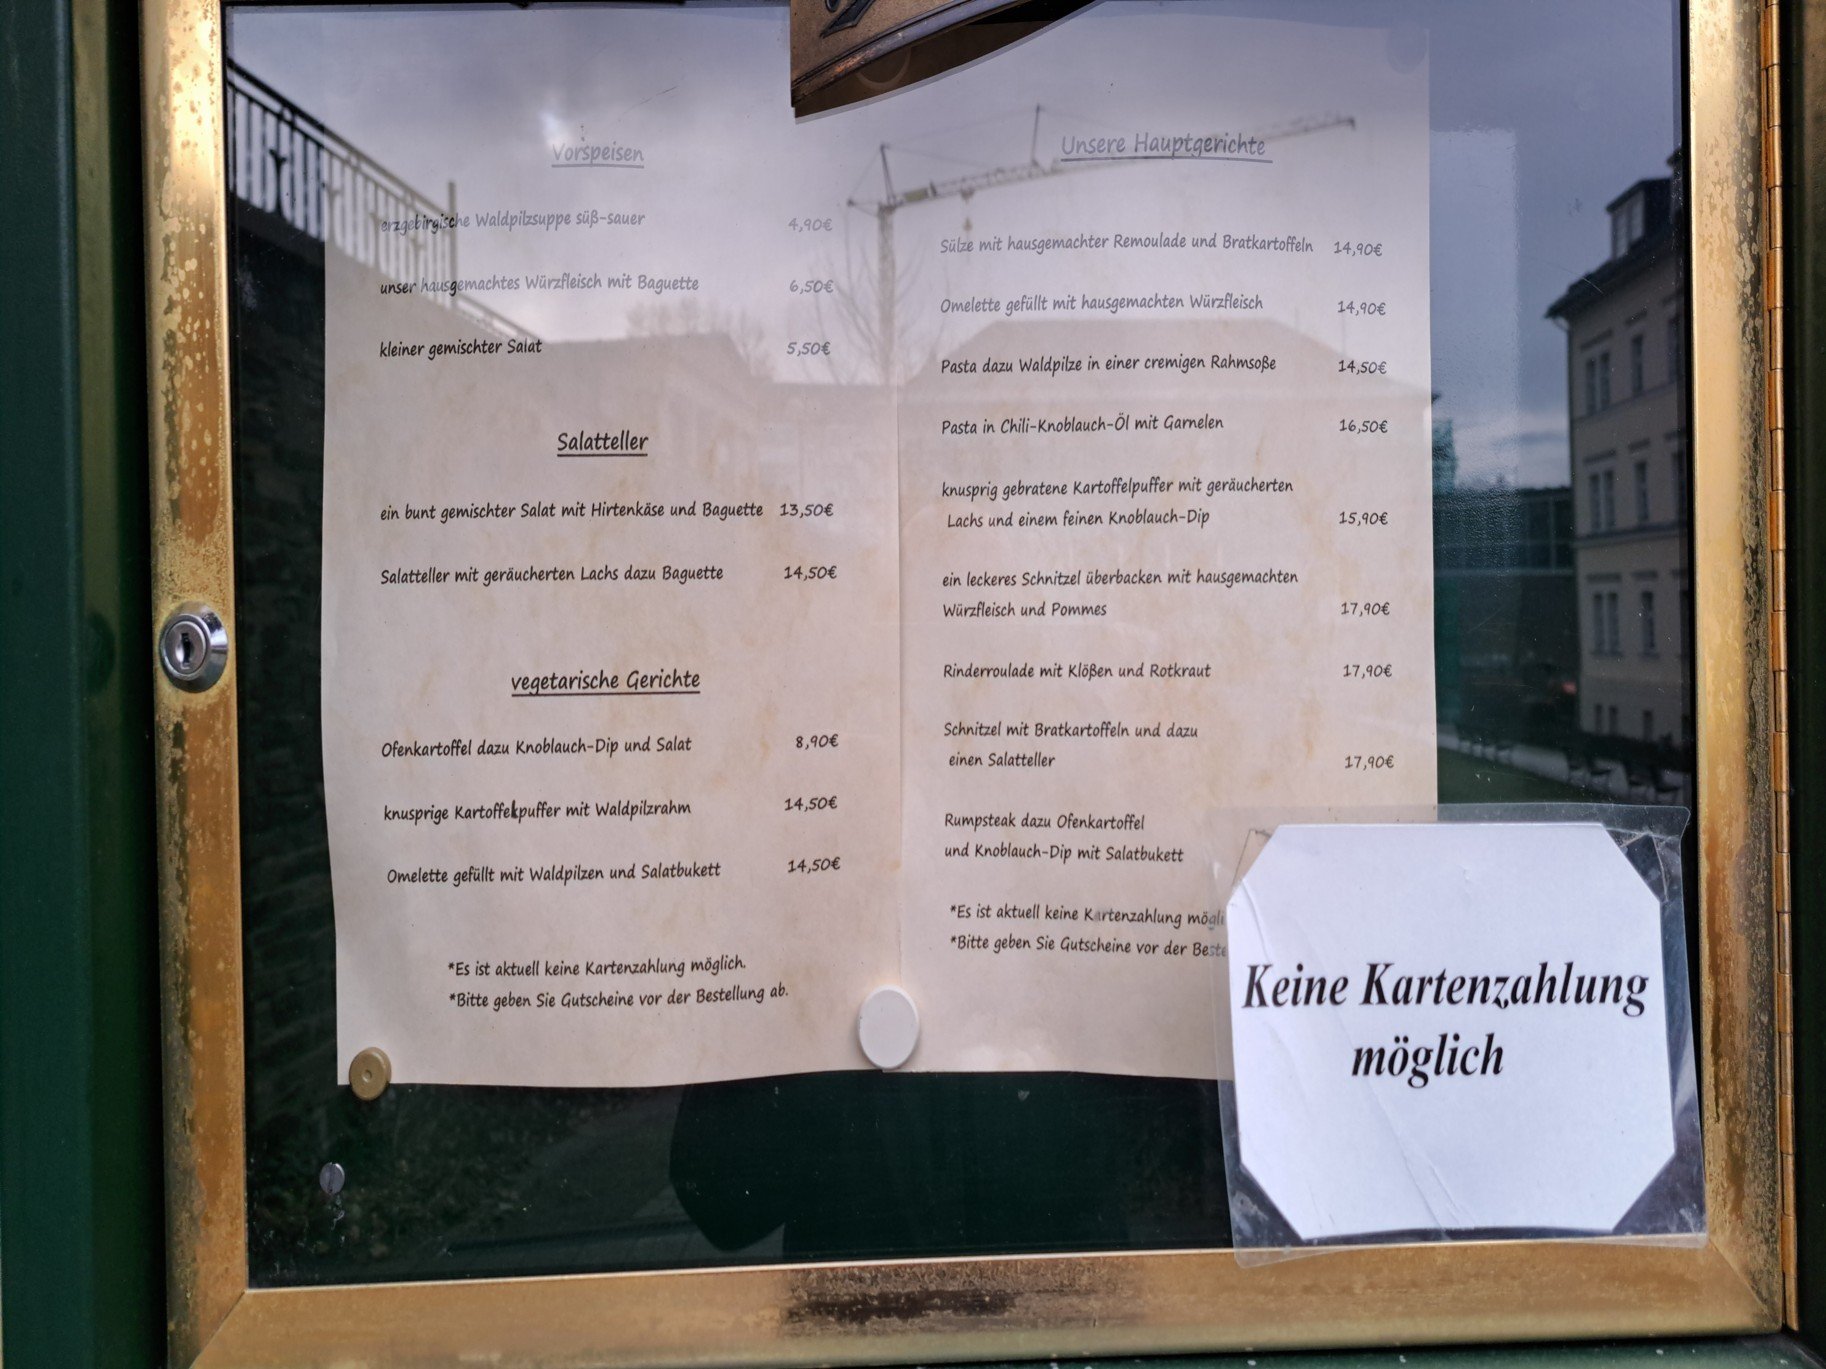 Vorspeisen
erzgebirgische Waldpilzsuppe süß-sauer 4,90€
unser hausgemachtes Würzfleisch mit Baguette 6,50€
kleiner gemischter Salat 5,50€
Salatteller
ein bunt gemischter Salat mit Hirtenkäse und Baguette 13,50€
Salatteller mit geräucherten Lachs dazu Baguette 14,50€
vegetarische Gerichte
Ofenkartoffel dazu Knoblauch-Dip und Salat 8,90€
knusprige Kartoffelpuffer mit Waldpilzrahm 14,50€
Omelette gefüllt mit Waldpilzen und Salatbukett 14,50€
*Es ist aktuell keine Kartenzahlung möglich.
*Bitte geben Sie Gutscheine vor der Bestellung ab.
Unsere Hauptgerichte
Sülze mit hausgemachter Remoulade und Bratkartoffeln 14,90€
Omelette gefüllt mit hausgemachten Würzfleisch 14,90€
Pasta dazu Waldpilze in einer cremigen Rahmsoße 14,50€
Pasta in Chili-Knoblauch-Öl mit Garnelen 16,50€
knusprig gebratene Kartoffelpuffer mit geräucherten
Lachs und einem feinen Knoblauch-Dip 15,90€
ein leckeres Schnitzel überbacken mit hausgemachten
Würzfleisch und Pommes 17,90€
Rinderroulade mit Klößen und Rotkraut 17,90€
Schnitzel mit Bratkartoffeln und dazu
einen Salatteller 17,90€
Rumpsteak dazu Ofenkartoffel
und Knoblauch-Dip mit Salatbukett
*Es ist aktuell keine Kartenzahlung mögli
*Bitte geben Sie Gutscheine vor der Beste
Keine Kartenzahlung
möglich